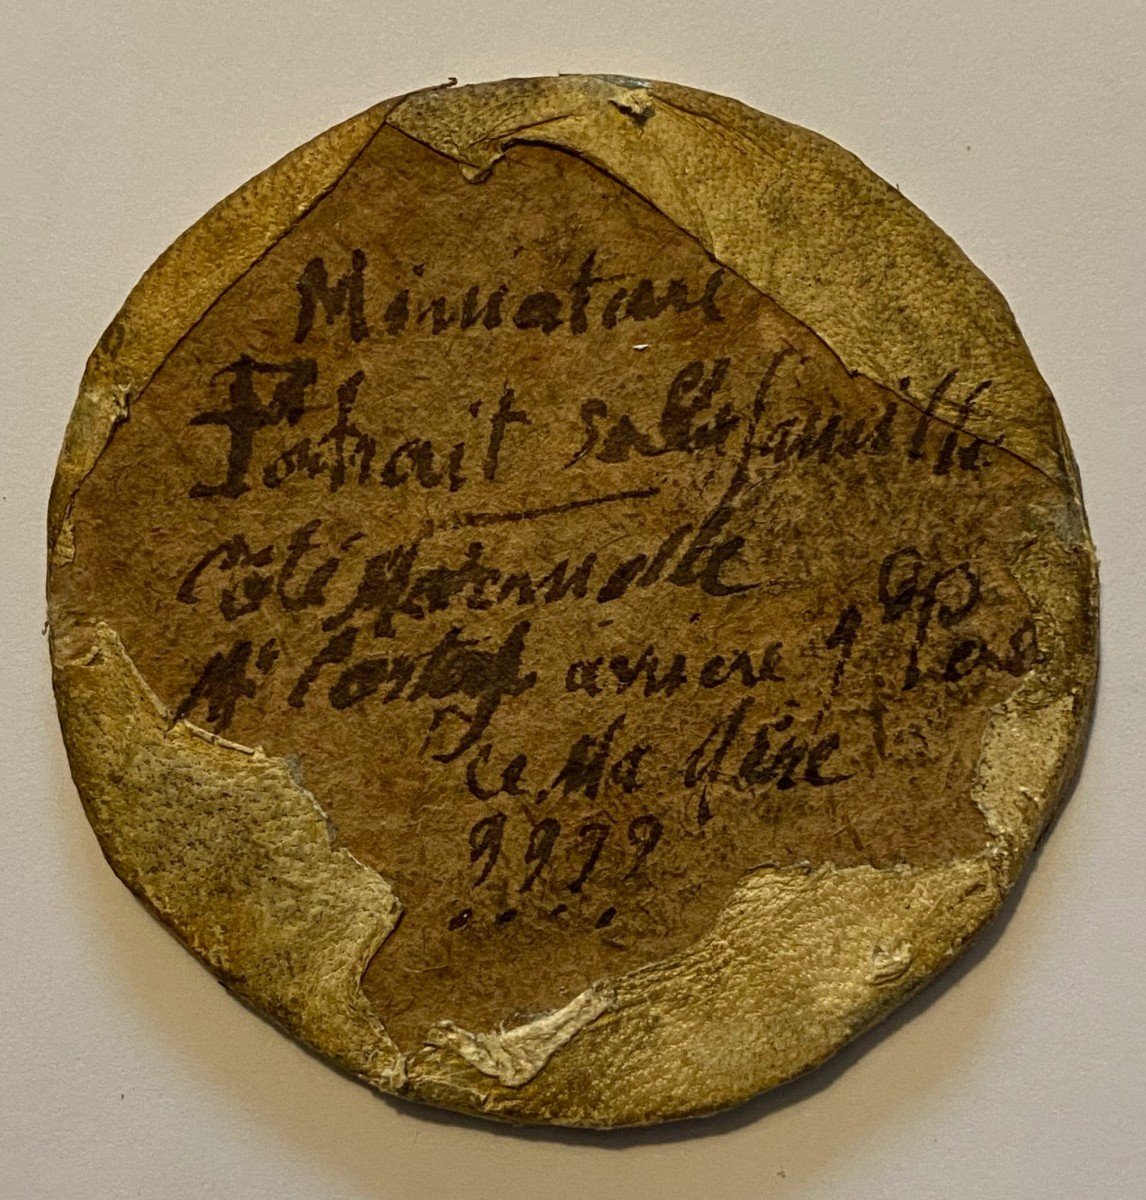 Miniature
Portrait de la famille
Côté Maternelle
Mr arriere gd Pere
de Ma Mère
????